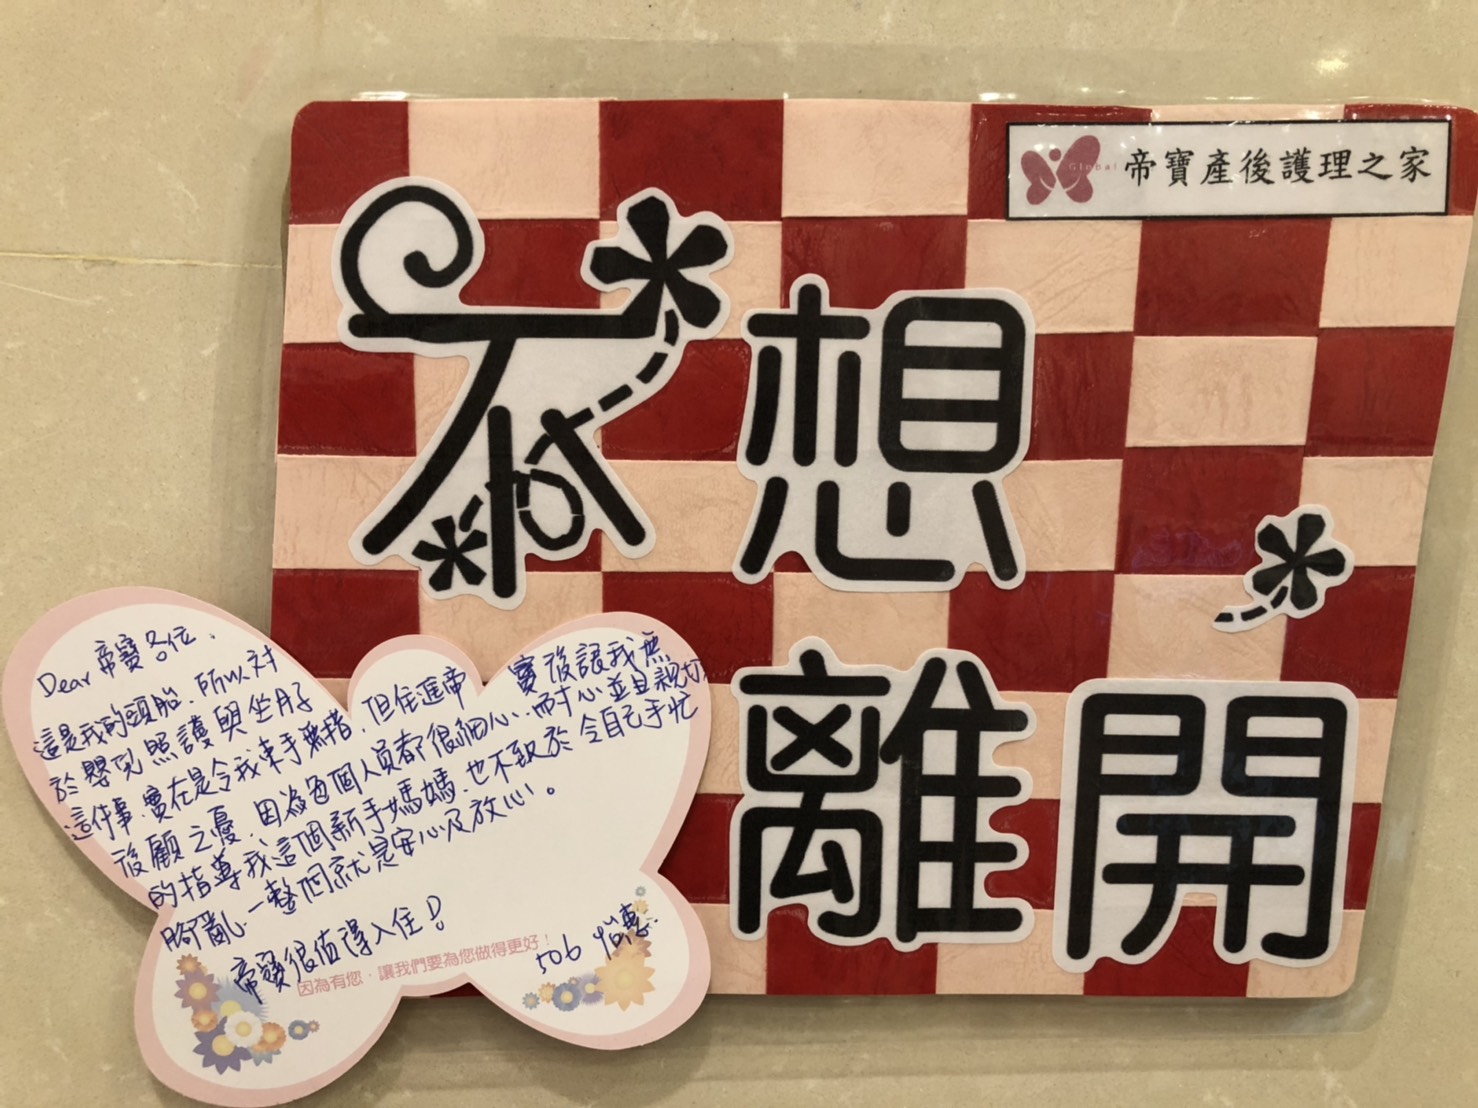 Global 帝寶產後護理之家
不想
離開
Dear 帝寶各位、
這是我的頭胎、所以對
於嬰兒照護與坐月子
這件事、實在是令我束手無措、但住進帝寶後讓我無
後顧之憂、因為每個人員都很細心、耐心並且親切
的指導我這個新手媽媽、也不致於令自己手忙
腳亂、一整個就是安心及放心。
帝寶很值得入住!
因為有您，讓我們要為您做得更好！
506 怡惠